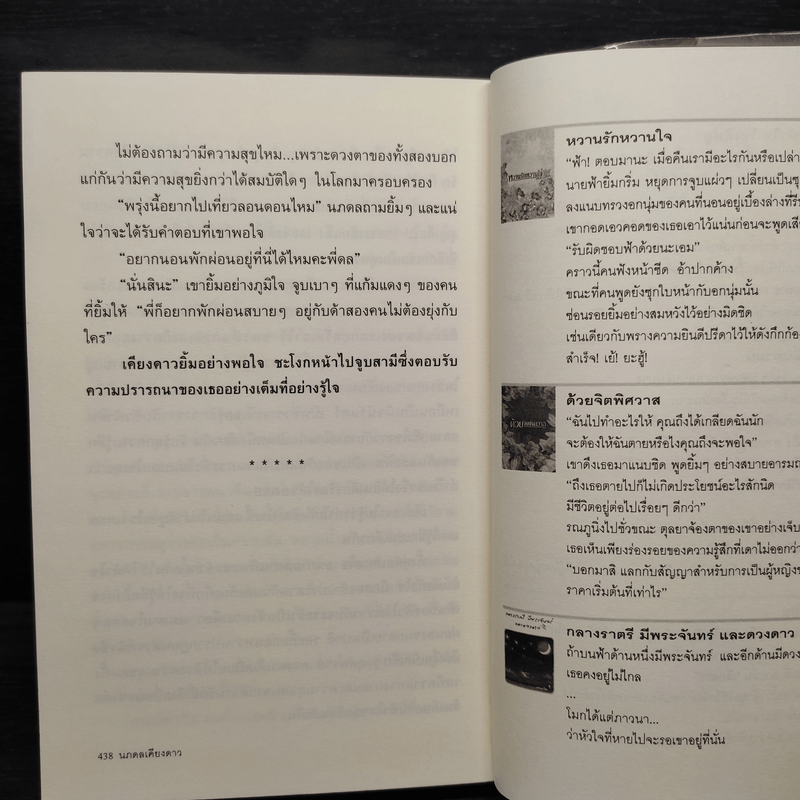 ไม่ต้องถามว่ามีความสุขไหม...เพราะดวงตาของทั้งสองบอก
แก่กันว่ามีความสุขยิ่งกว่าได้สมบัติใดๆ ในโลกมาครอบครอง
“พรุ่งนี้อยากไปเที่ยวลอนดอนไหม” นภดลถามยิ้มๆ และแน่
ใจว่าจะได้รับคำตอบที่เขาพอใจ
“อยากนอนพักผ่อนอยู่ที่นี่ได้ไหมคะพี่ดล”
“นั่นสินะ” เขายิ้มอย่างภูมิใจ จูบเบาๆ ที่แก้มแดงๆ ของคน
ที่ยิ้มให้ “พี่ก็อยากพักผ่อนสบายๆ อยู่กับด้าสองคนไม่ต้องยุ่งกับ
ใคร”
เคียงดาวยิ้มอย่างพอใจ ชะโงกหน้าไปจูบสามีซึ่งตอบรับ
ความปรารถนาของเธออย่างเต็มที่อย่างรู้ใจ
* * * * *
438 นภดลเคียงดาว
หวานรักหวานใจ
“ฟ้า! ตอบมานะ เมื่อคืนเรามีอะไรกันหรือเปล่า
นายฟ้ายิ้มกริ่ม หยุดการจูบแผ่วๆ เปลี่ยนเป็นซุ
ลงแนบทรวงอกนุ่มของคนที่นอนอยู่เบื้องล่างที่รีบ
เขากอดเอวคอดของเธอเอาไว้แน่นก่อนจะพูดเสีย
“รับผิดชอบฟ้าด้วยนะเอม”
คราวนี้คนฟังหน้าซีด อ้าปากค้าง
ขณะที่คนพูดยังซุกใบหน้ากับอกนุ่มนั้น
ซ่อนรอยยิ้มอย่างสมหวังไว้อย่างมิดชิด
เช่นเดียวกับพรางความยินดีปรีดาไว้ให้ดังกึกก้อง
สำเร็จ! เย้! ยะฮู้!
ด้วยจิตพิศวาส
“ฉันไปทำอะไรให้ คุณถึงได้เกลียดฉันนัก
จะต้องให้ฉันตายหรือไงคุณถึงจะพอใจ”
เขาดึงเธอมาแนบชิด พูดยิ้มๆ อย่างสบายอารมณ
“ถึงเธอตายไปก็ไม่เกิดประโยชน์อะไรสักนิด
มีชีวิตอยู่ต่อไปเรื่อยๆ ดีกว่า”
รณภูนิ่งไปชั่วขณะ ตุลยาจ้องตาของเขาอย่างเจ็บ
เธอเห็นเพียงร่องรอยของความรู้สึกที่เดาไม่ออกว่า
“บอกมาสิ แลกกับสัญญาสำหรับการเป็นผู้หญิงข
ราคาเริ่มต้นที่เท่าไร”
กลางราตรี มีพระจันทร์ และดวงดาว
ถ้าบนฟ้าด้านหนึ่งมีพระจันทร์ และอีกด้านมีดวง
เธอคงอยู่ไม่ไกล
...
โมกได้แต่ภาวนา...
ว่าหัวใจที่หายไปจะรอเขาอยู่ที่นั่น